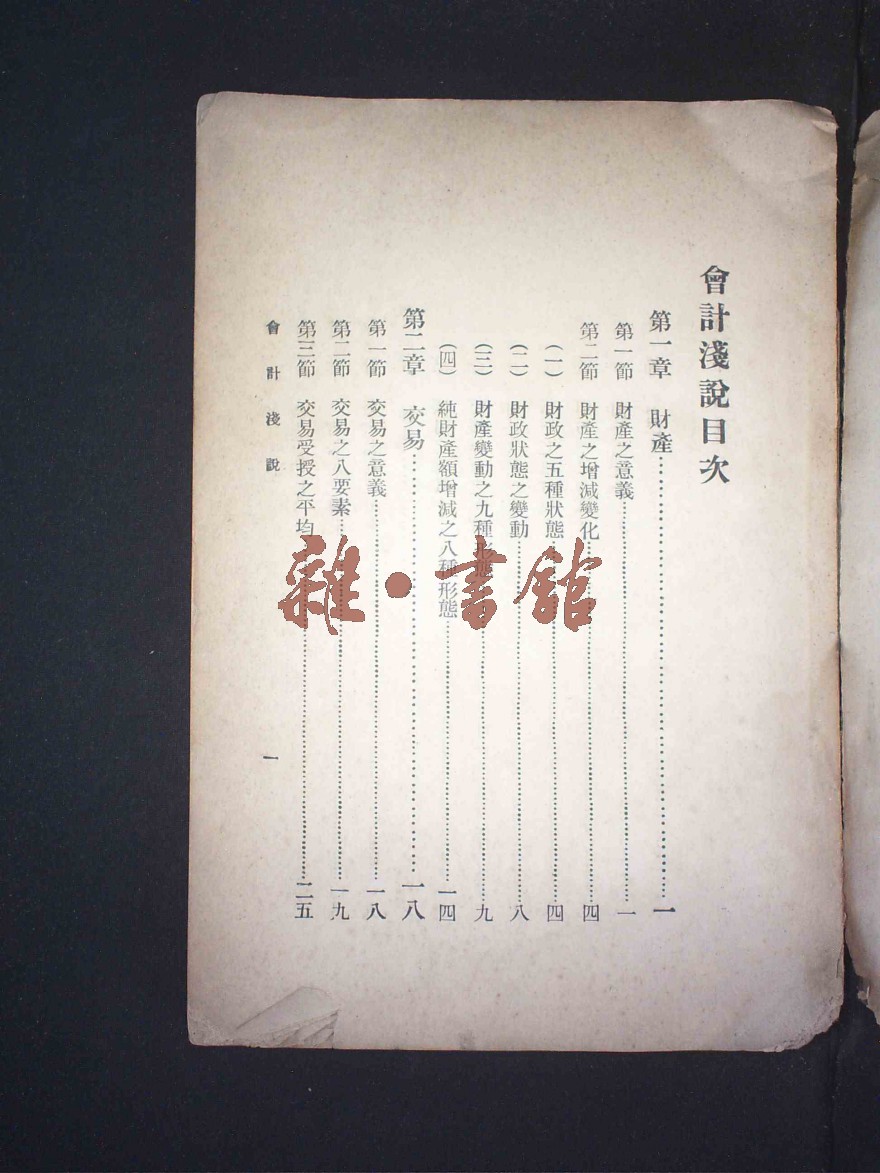 會計淺說目次
第一章 財產……一
第一節 財產之意義……一
第二節 財產之增減變化……四
(一) 財政之五種狀態……四
(二) 財政狀態之變動……八
(三) 財產變動之九種形態……九
(四) 純財產額增減之八種形態……一四
第二章 交易……一八
第一節 交易之意義……一八
第二節 交易之八要素……一九
第三節 交易受授之平均……二五
會計淺說 一
雜·書館